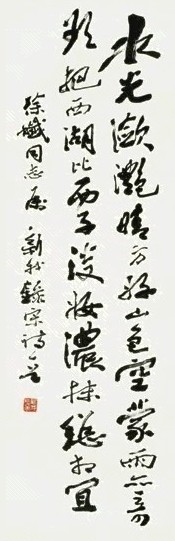 水光潋灧晴方好山色空蒙雨亦奇
欲把西湖比西子淡妆濃抹總相宜
徐 同志属 新我録宋詩之一